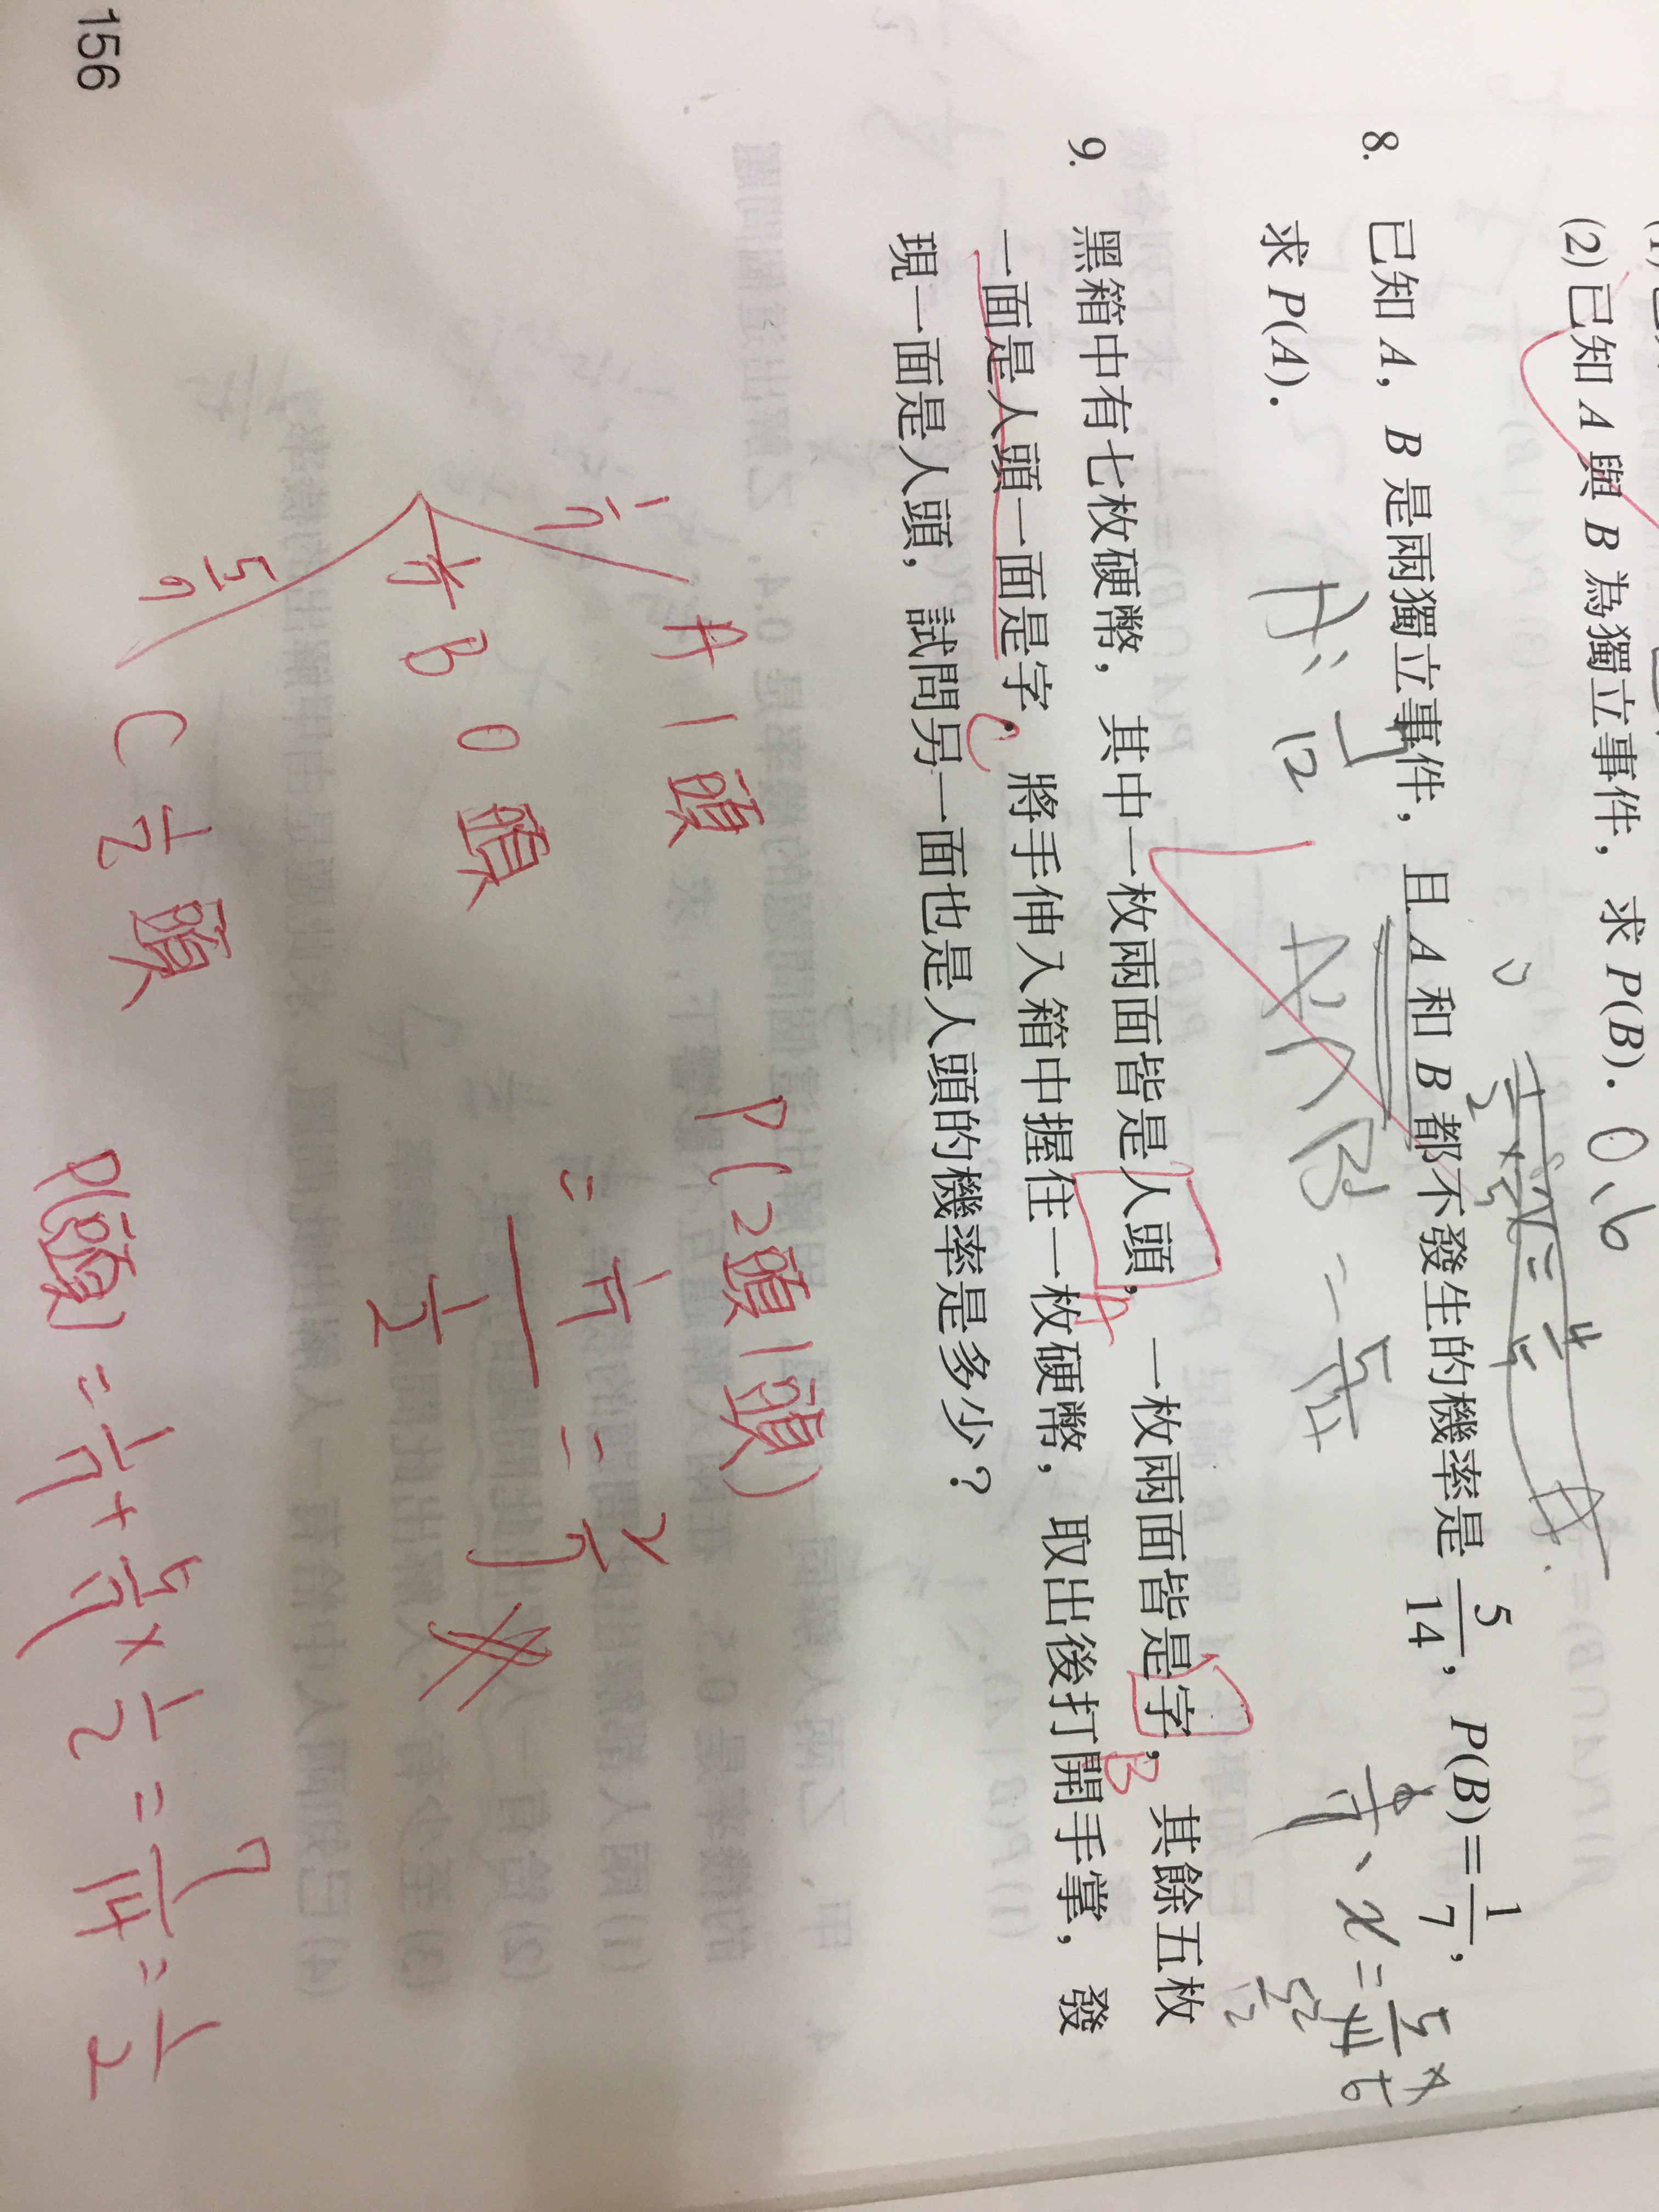 (2)已知 A 與 B 為獨立事件，求 P(B). 0.6
8. 已知 A，B 是兩獨立事件，且 A 和 B 都不發生的機率是 5/14，P(B)=1/7，
求 P(A).
A'∩B' = 5/14
9. 黑箱中有七枚硬幣，其中一枚兩面皆是人頭，一枚兩面皆是字，其餘五枚
A
B
一面是人頭一面是字. 將手伸入箱中握住一枚硬幣，取出後打開手掌，發
C
現一面是人頭，試問另一面也是人頭的機率是多少？
1/7 A 1 頭
1/7 B 0 頭
5/7 C 1/2 頭
P(2頭|頭)
= 1/7 / 1/2 = 2/7
P(頭) = 1/7 + 5/7 × 1/2 = 7/14 = 1/2
156